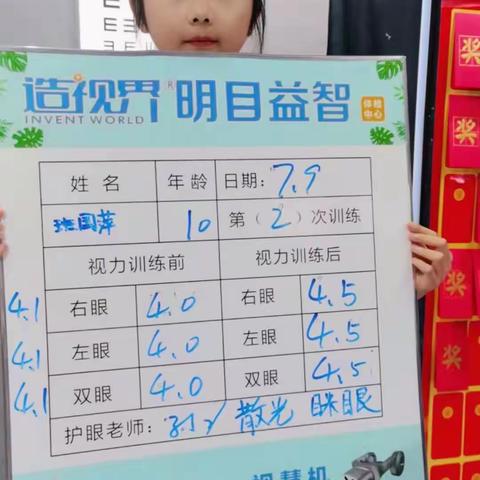 造视界 明目益智 体验中心
INVENT WORLD
姓名 年龄 日期: 7.9
班国萍 10 第(2)次训练
视力训练前 视力训练后
4.1 右眼 4.0 右眼 4.5
4.1 左眼 4.0 左眼 4.5
4.1 双眼 4.0 双眼 4.5
护眼老师: 散光 眯眼
奖
奖
奖
奖
奖